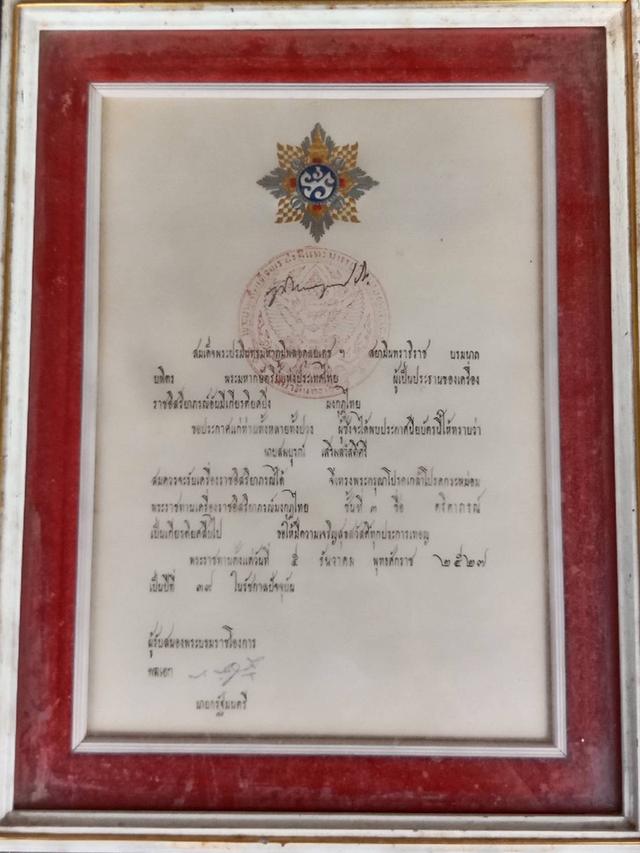 สมเด็จพระปรมินทรมหาภูมิพลอดุลยเดช ฯ สยามินทราธิราช บรมนาถ
บพิตร พระมหากษัตริย์แห่งประเทศไทย ผู้เป็นประธานของเครื่อง
ราชอิสริยาภรณ์อันมีเกียรติยศยิ่ง มงกุฎไทย
ขอประกาศแก่ท่านทั้งหลายทั้งปวง ผู้ซึ่งจะได้พบประกาศนียบัตรนี้ให้ทราบว่า
นายสมบูรณ์ เสริมสวัสดิ์ศรี
สมควรจะรับเครื่องราชอิสริยาภรณ์ได้ จึงทรงพระกรุณาโปรดเกล้าโปรดกระหม่อม
พระราชทานเครื่องราชอิสริยาภรณ์มงกุฎไทย ชั้นที่ ๓ ชื่อ ตริตาภรณ์
เป็นเกียรติยศสืบไป ขอให้มีความเจริญสุขสวัสดิ์ทุกประการเทอญ
พระราชทานตั้งแต่วันที่ ๕ ธันวาคม พุทธศักราช ๒๕๒๗
เป็นปีที่ ๓๙ ในรัชกาลปัจจุบัน
ผู้รับสนองพระบรมราชโองการ
พลเอก
นายกรัฐมนตรี